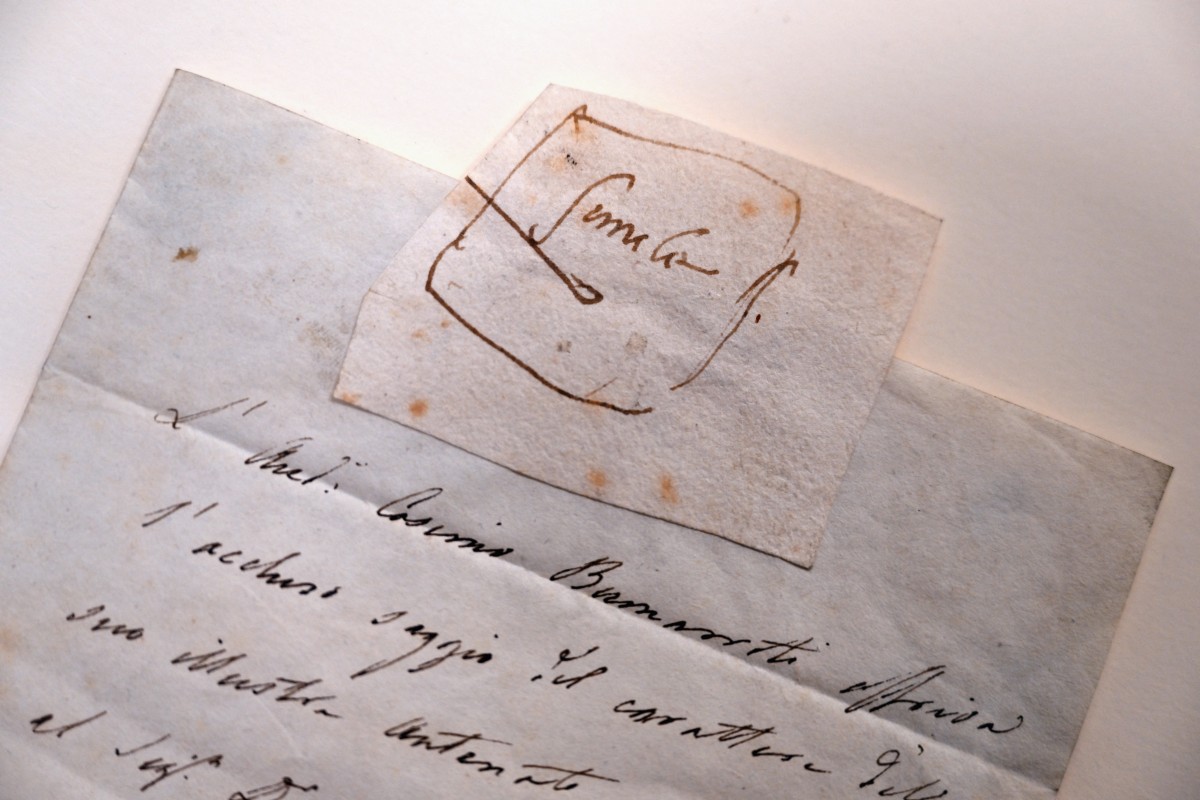 simile
L' Cosimo Buonarroti offriva
l'accluso saggio del carattere dell
suo illustre antenato
al Sig.r D